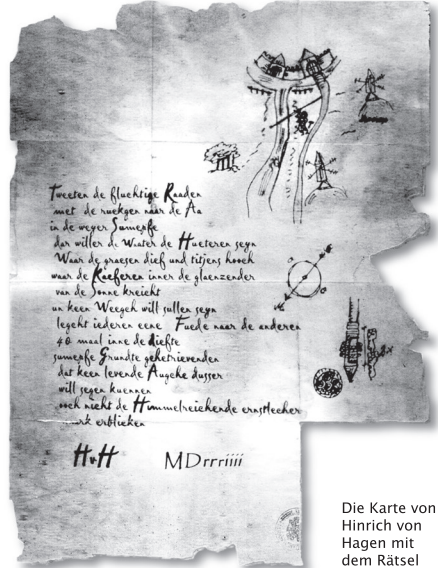 Tweeten de fluchtige Raaden
met de ruekgen naar de Aa
in de weyer Sumpfe
dar willer de Water de Hueteren seyn
Waar de graesen dief und titjens hooch
waar de Kieferen inner de glaenzender
van de Sonne kreicht
un keen Weegeh will sullen seyn
legeht iederen eene Fuede naar de anderen
40 maal inne de diefte
sumpfe Grundte geketrievenden
dat keen levende Augehe dusser
will segen kuennen
ooch nicht de Himmelreichende ernstlecher
erblicken
HvH MDrrriiii
Die Karte von
Hinrich von
Hagen mit
dem Rätsel